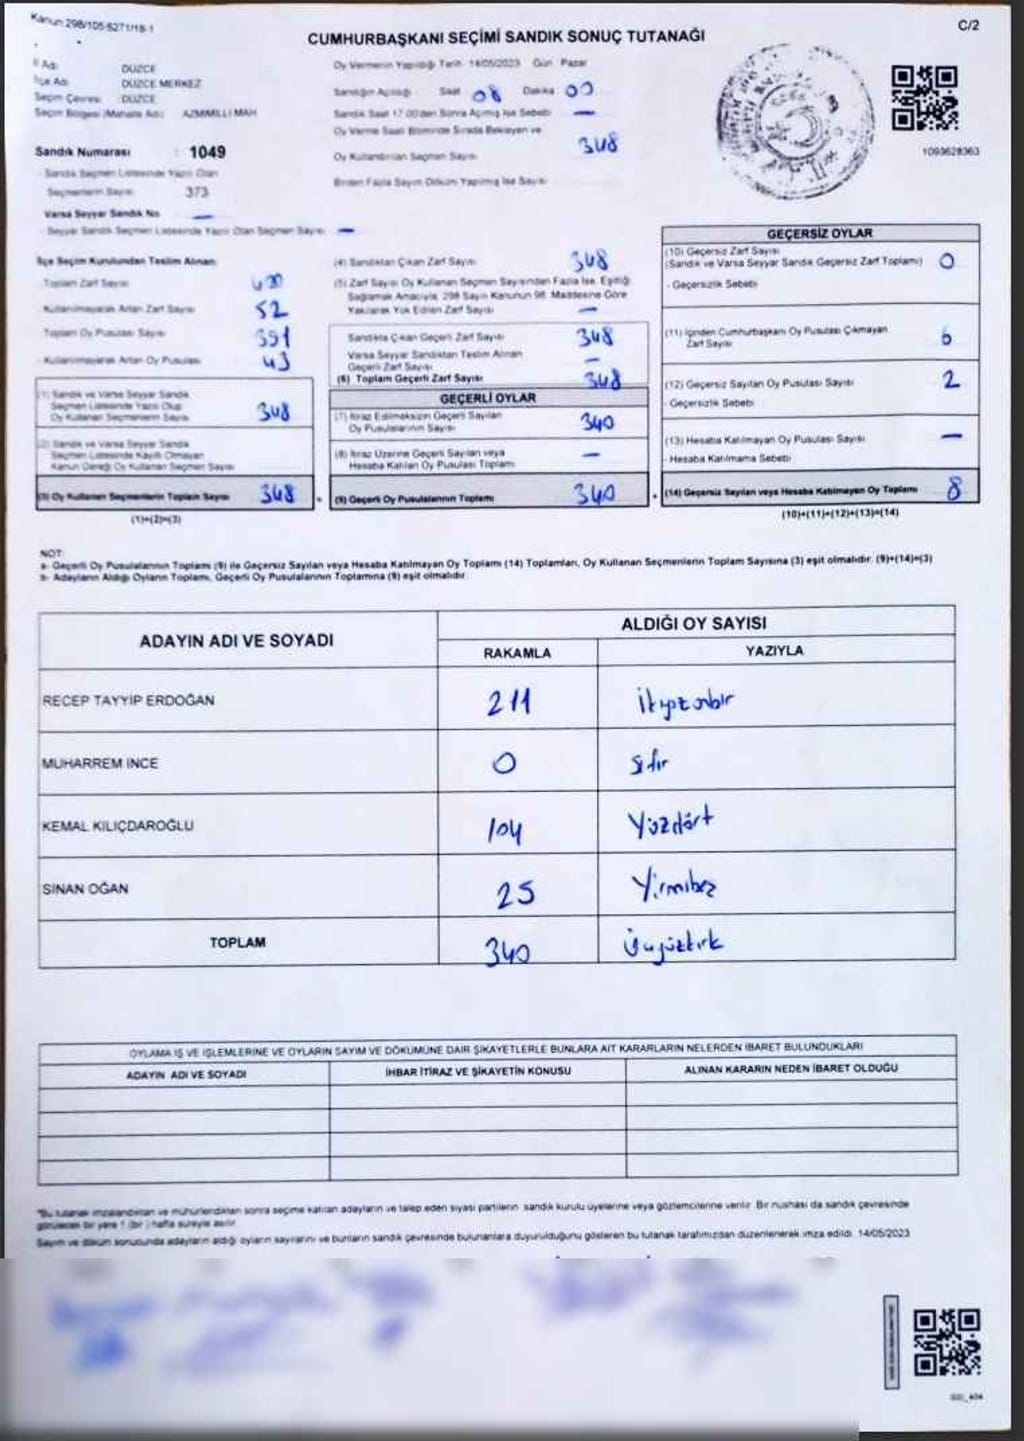 Kanun 298/105-6271/18-1
C/2
CUMHURBAŞKANI SEÇİMİ SANDIK SONUÇ TUTANAĞI
İl Adı DÜZCE
İlçe Adı DÜZCE MERKEZ
Seçim Çevresi DÜZCE
Seçim Bölgesi (Mahalle Adı) AZMİMİLLİ MAH
Sandık Numarası : 1049
- Sandık Seçmen Listesinde Yazılı Olan
Seçmenlerin Sayısı 373
Varsa Seyyar Sandık No —
- Seyyar Sandık Seçmen Listesinde Yazılı Olan Seçmen Sayısı —
Oy Vermenin Yapıldığı Tarih 14/05/2023 Gün Pazar
Sandığın Açıldığı Saat 08 Dakika 00
Sandık Saat 17.00'den Sonra Açılmış İse Sebebi —
Oy Verme Saati Bitiminde Sırada Bekleyen ve
Oy Kullandırılan Seçmen Sayısı 348
Birden Fazla Sayım Döküm Yapılmış İse Sayısı
1093628363
İlçe Seçim Kurulundan Teslim Alınan
Toplam Zarf Sayısı 400
Kullanılmayarak Artan Zarf Sayısı 52
Toplam Oy Pusulası Sayısı 391
- Kullanılmayarak Artan Oy Pusulası 43
(1) Sandık ve Varsa Seyyar Sandık
Seçmen Listesinde Yazılı Olup
Oy Kullanan Seçmenlerin Sayısı 348
(2) Sandık ve Varsa Seyyar Sandık
Seçmen Listesinde Kayıtlı Olmayan
Kanun Gereği Oy Kullanan Seçmen Sayısı
(3) Oy Kullanan Seçmenlerin Toplam Sayısı 348
(1)+(2)=(3)
(4) Sandıktan Çıkan Zarf Sayısı 348
(5) Zarf Sayısı Oy Kullanan Seçmen Sayısından Fazla İse, Eşitliği
Sağlamak Amacıyla, 298 Sayılı Kanunun 98. Maddesine Göre
Yakılarak Yok Edilen Zarf Sayısı —
Sandıkta Çıkan Geçerli Zarf Sayısı 348
Varsa Seyyar Sandıktan Teslim Alınan
Geçerli Zarf Sayısı —
(6) Toplam Geçerli Zarf Sayısı 348
GEÇERLİ OYLAR
(7) İtiraz Edilmeksizin Geçerli Sayılan
Oy Pusulalarının Sayısı 340
(8) İtiraz Üzerine Geçerli Sayılan veya
Hesaba Katılan Oy Pusulası Toplamı —
(9) Geçerli Oy Pusulalarının Toplamı 340
GEÇERSİZ OYLAR
(10) Geçersiz Zarf Sayısı
(Sandık ve Varsa Seyyar Sandık Geçersiz Zarf Toplamı) 0
- Geçersizlik Sebebi
(11) İçinden Cumhurbaşkanı Oy Pusulası Çıkmayan
Zarf Sayısı 6
(12) Geçersiz Sayılan Oy Pusulası Sayısı 2
- Geçersizlik Sebebi
(13) Hesaba Katılmayan Oy Pusulası Sayısı —
- Hesaba Katılmama Sebebi
(14) Geçersiz Sayılan veya Hesaba Katılmayan Oy Toplamı 8
(10)+(11)+(12)+(13)=(14)
NOT:
a- Geçerli Oy Pusulalarının Toplamı (9) ile Geçersiz Sayılan veya Hesaba Katılmayan Oy Toplamı (14) Toplamları, Oy Kullanan Seçmenlerin Toplam Sayısına (3) eşit olmalıdır. (9)+(14)=(3)
b- Adayların Aldığı Oyların Toplamı, Geçerli Oy Pusulalarının Toplamına (9) eşit olmalıdır.
ADAYIN ADI VE SOYADI ALDIĞI OY SAYISI
RAKAMLA YAZIYLA
RECEP TAYYİP ERDOĞAN 211 ikiyüzonbir
MUHARREM İNCE 0 sıfır
KEMAL KILIÇDAROĞLU 104 Yüzdört
SİNAN OĞAN 25 Yirmibeş
TOPLAM 340 Üçyüzkırk
OYLAMA İŞ VE İŞLEMLERİNE VE OYLARIN SAYIM VE DÖKÜMÜNE DAİR ŞİKAYETLERLE BUNLARA AİT KARARLARIN NELERDEN İBARET BULUNDUKLARI
ADAYIN ADI VE SOYADI İHBAR İTİRAZ VE ŞİKAYETİN KONUSU ALINAN KARARIN NEDEN İBARET OLDUĞU
*Bu tutanak imzalandıktan ve mühürlendikten sonra seçime katılan adayların ve talep eden siyasi partilerin sandık kurulu üyelerine veya gözlemcilerine verilir. Bir nüshası da sandık çevresinde
görülecek bir yere 1 (bir) hafta süreyle asılır.
Sayım ve döküm sonucunda adayların aldığı oyların sayılarını ve bunların sandık çevresinde bulunanlara duyurulduğunu gösteren bu tutanak tarafımızdan düzenlenerek imza edildi. 14/05/2023